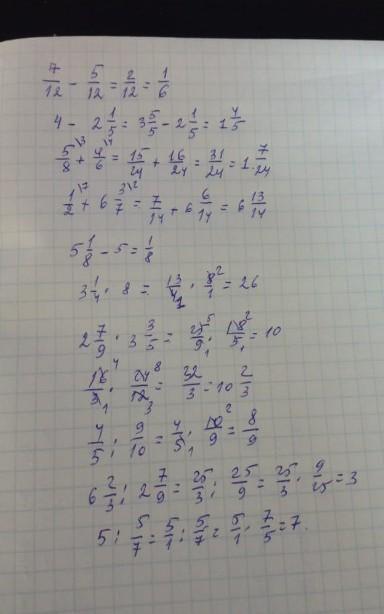 7/12 - 5/12 = 2/12 = 1/6
4 - 2 1/5 = 3 5/5 - 2 1/5 = 1 4/5
5/8 \3 + 4/6 \4 = 15/24 + 16/24 = 31/24 = 1 7/24
1/2 \7 + 6 3/7 \2 = 7/14 + 6 6/14 = 6 13/14
5 1/8 - 5 = 1/8
3 1/4 · 8 = 13/4 1 · 8 2/1 = 26
2 7/9 · 3 3/5 = 25 5/9 1 · 18 2/5 1 = 10
16/3 1 · 24 8/12 3 = 32/3 = 10 2/3
4/5 : 9/10 = 4/5 1 · 10 2/9 = 8/9
6 2/3 : 2 7/9 = 25/3 : 25/9 = 25/3 · 9/25 = 3
5 : 5/7 = 5/1 : 5/7 = 5/1 · 7/5 = 7.